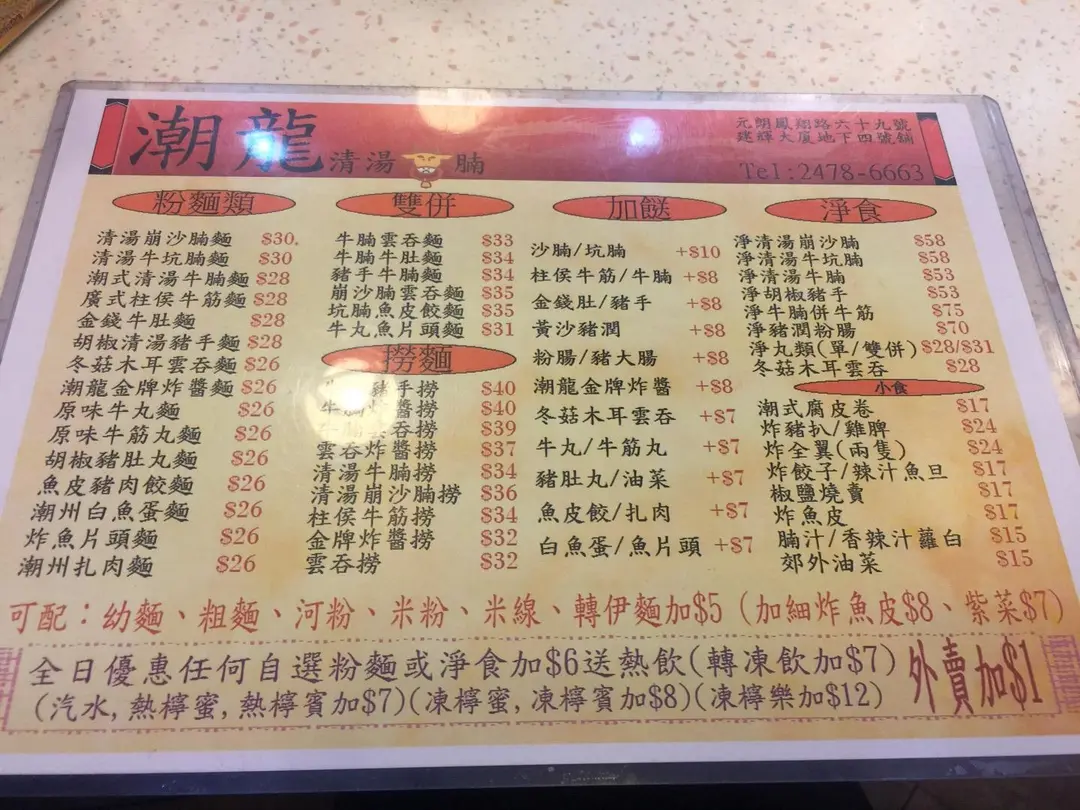 潮龍清湯腩
元朗鳳翔路六十九號
建輝大廈地下四號舖
Tel:2478-6663
粉麵類
清湯崩沙腩麵 $30
清湯牛坑腩麵 $30
潮式清湯牛腩麵 $28
廣式柱侯牛筋麵 $28
金錢牛肚麵 $28
胡椒清湯豬手麵 $28
冬菇木耳雲吞麵 $26
潮龍金牌炸醬麵 $26
原味牛丸麵 $26
原味牛筋丸麵 $26
胡椒豬肚丸麵 $26
魚皮豬肉餃麵 $26
潮州白魚蛋麵 $26
炸魚片頭麵 $26
潮州扎肉麵 $26
雙併
牛腩雲吞麵 $33
牛腩牛肚麵 $34
豬手牛腩麵 $34
崩沙腩雲吞麵 $35
坑腩魚皮餃麵 $35
牛丸魚片頭麵 $31
撈麵
豬手撈 $40
醬撈 $40
吞撈 $39
雲吞炸醬撈 $37
清湯牛腩撈 $34
清湯崩沙腩撈 $36
柱侯牛筋撈 $34
金牌炸醬撈 $32
雲吞撈 $32
加餸
沙腩/坑腩 +$10
柱侯牛筋/牛腩 +$8
金錢肚/豬手 +$8
黃沙豬潤 +$8
粉腸/豬大腸 +$8
潮龍金牌炸醬 +$8
冬菇木耳雲吞 +$7
牛丸/牛筋丸 +$7
豬肚丸/油菜 +$7
魚皮餃/扎肉 +$7
白魚蛋/魚片頭 +$7
淨食
淨清湯崩沙腩 $58
淨清湯牛坑腩 $58
淨清湯牛腩 $53
淨胡椒豬手 $53
淨牛腩併牛筋 $75
淨豬潤粉腸 $70
淨丸類(單/雙併) $28/$31
冬菇木耳雲吞 $28
小食
潮式腐皮卷 $17
炸豬扒/雞脾 $24
炸全翼(兩隻) $24
炸餃子/辣汁魚旦 $17
椒鹽燒賣 $17
炸魚皮 $17
腩汁/香辣汁蘿白 $15
郊外油菜 $15
可配：幼麵、粗麵、河粉、米粉、米線、轉伊麵加$5 (加細炸魚皮$8、紫菜$7)
全日優惠任何自選粉麵或淨食加$6送熱飲(轉凍飲加$7)
(汽水,熱檸蜜,熱檸賓加$7)(凍檸蜜,凍檸賓加$8)(凍檸樂加$12)
外賣加$1